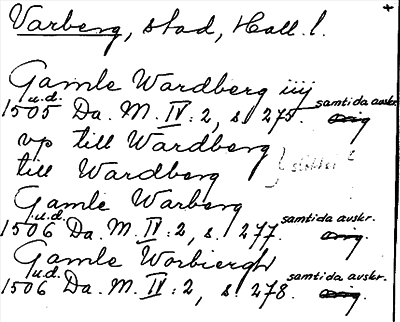 Varberg, stad, Hall. l.
Gamle Wardberg iiij
1505 u.d. Da. M. IV:2, s. 275. samtida avskr. orig.
vp till Wardberg
till Wardberg
Gamle Warberg
1506 u.d. Da. M. IV:2, s. 277. samtida avskr. orig.
Gamle Worbiergh
1506 u.d. Da. M. IV:2, s. 278. samtida avskr. orig.